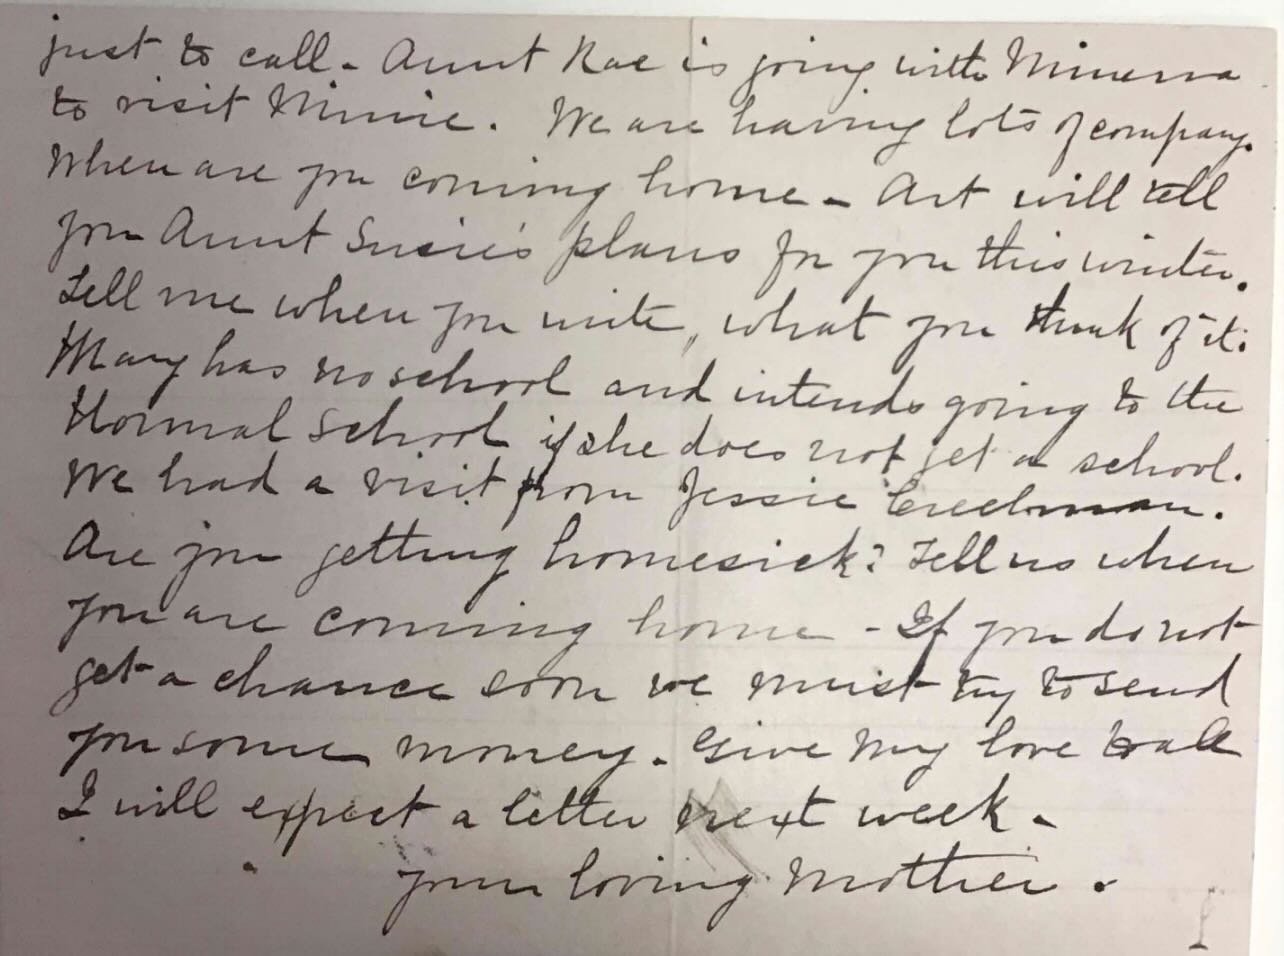 just to call - Aunt Rae is going with Minerva
to visit Minnie. We are having lots of company.
When are you coming home - Art will tell
you Aunt Susie's plans for you this winter.
Tell me when you write, what you think of it.
Mary has no school and intends going to the
Normal School if she does not get a school.
We had a visit from Jessie Creelman.
Are you getting homesick? Tell us when
you are coming home - If you do not
get a chance soon we must try to send
you some money. Give my love to all
I will expect a letter next week -
your loving Mother.